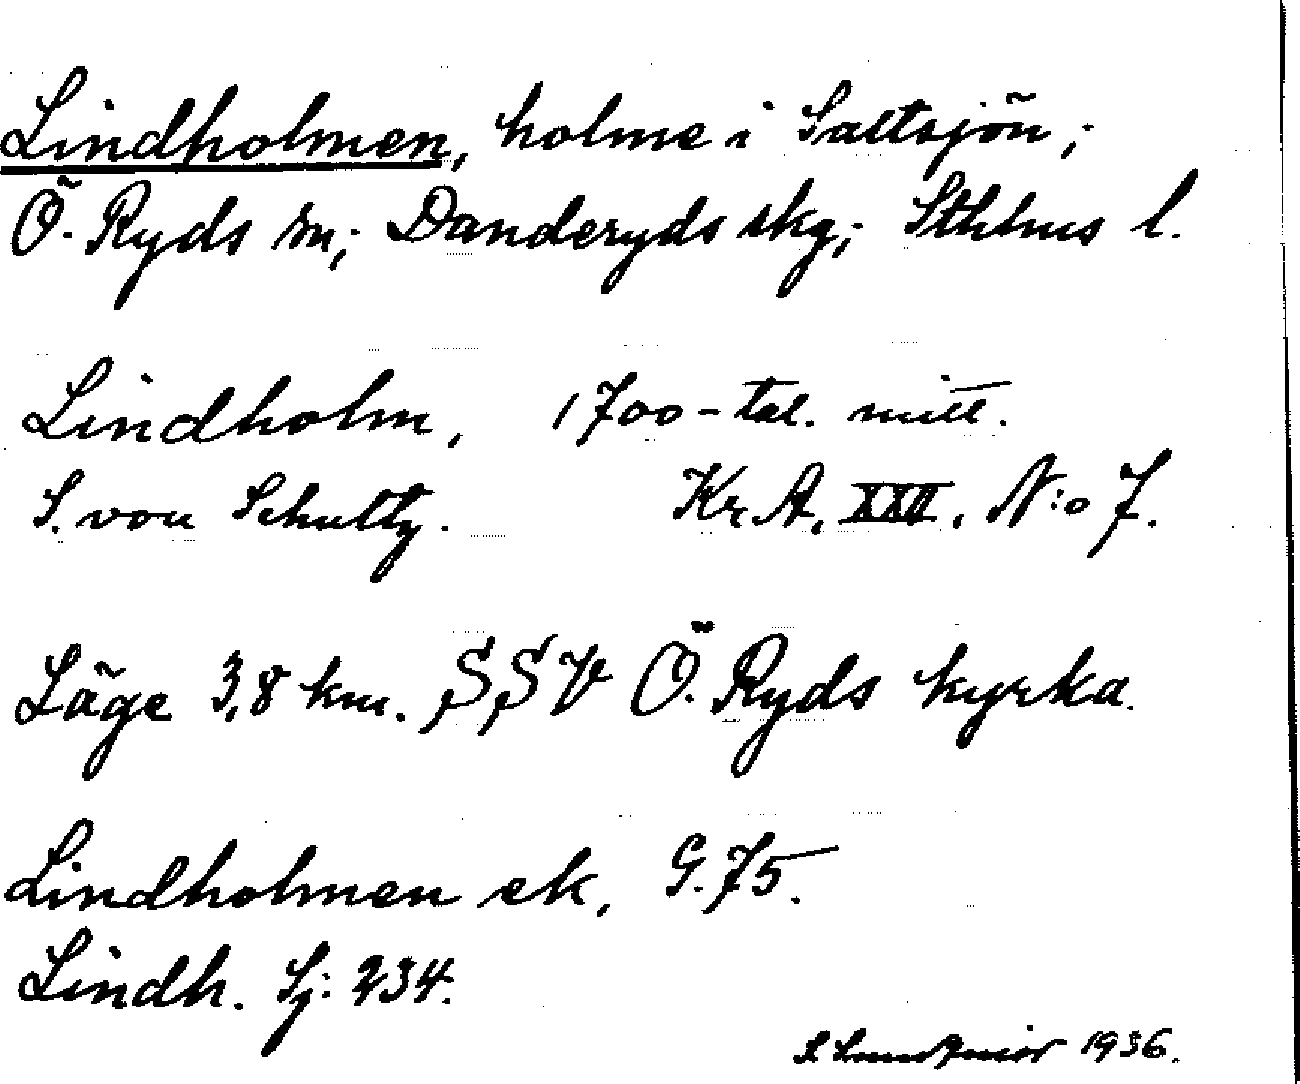 Lindholmen, holme i Saltsjön;
Ö. Ryds sn; Danderyds skg; Sthlms l.
Lindholm, 1700-tal. mitt.
S. von Schultz. Kr. A. XXII. N:o 7.
Läge 3,8 km. SSV Ö. Ryds kyrka.
Lindholmen ek, G. 75.
Lindh. Sj: 234.
1936.